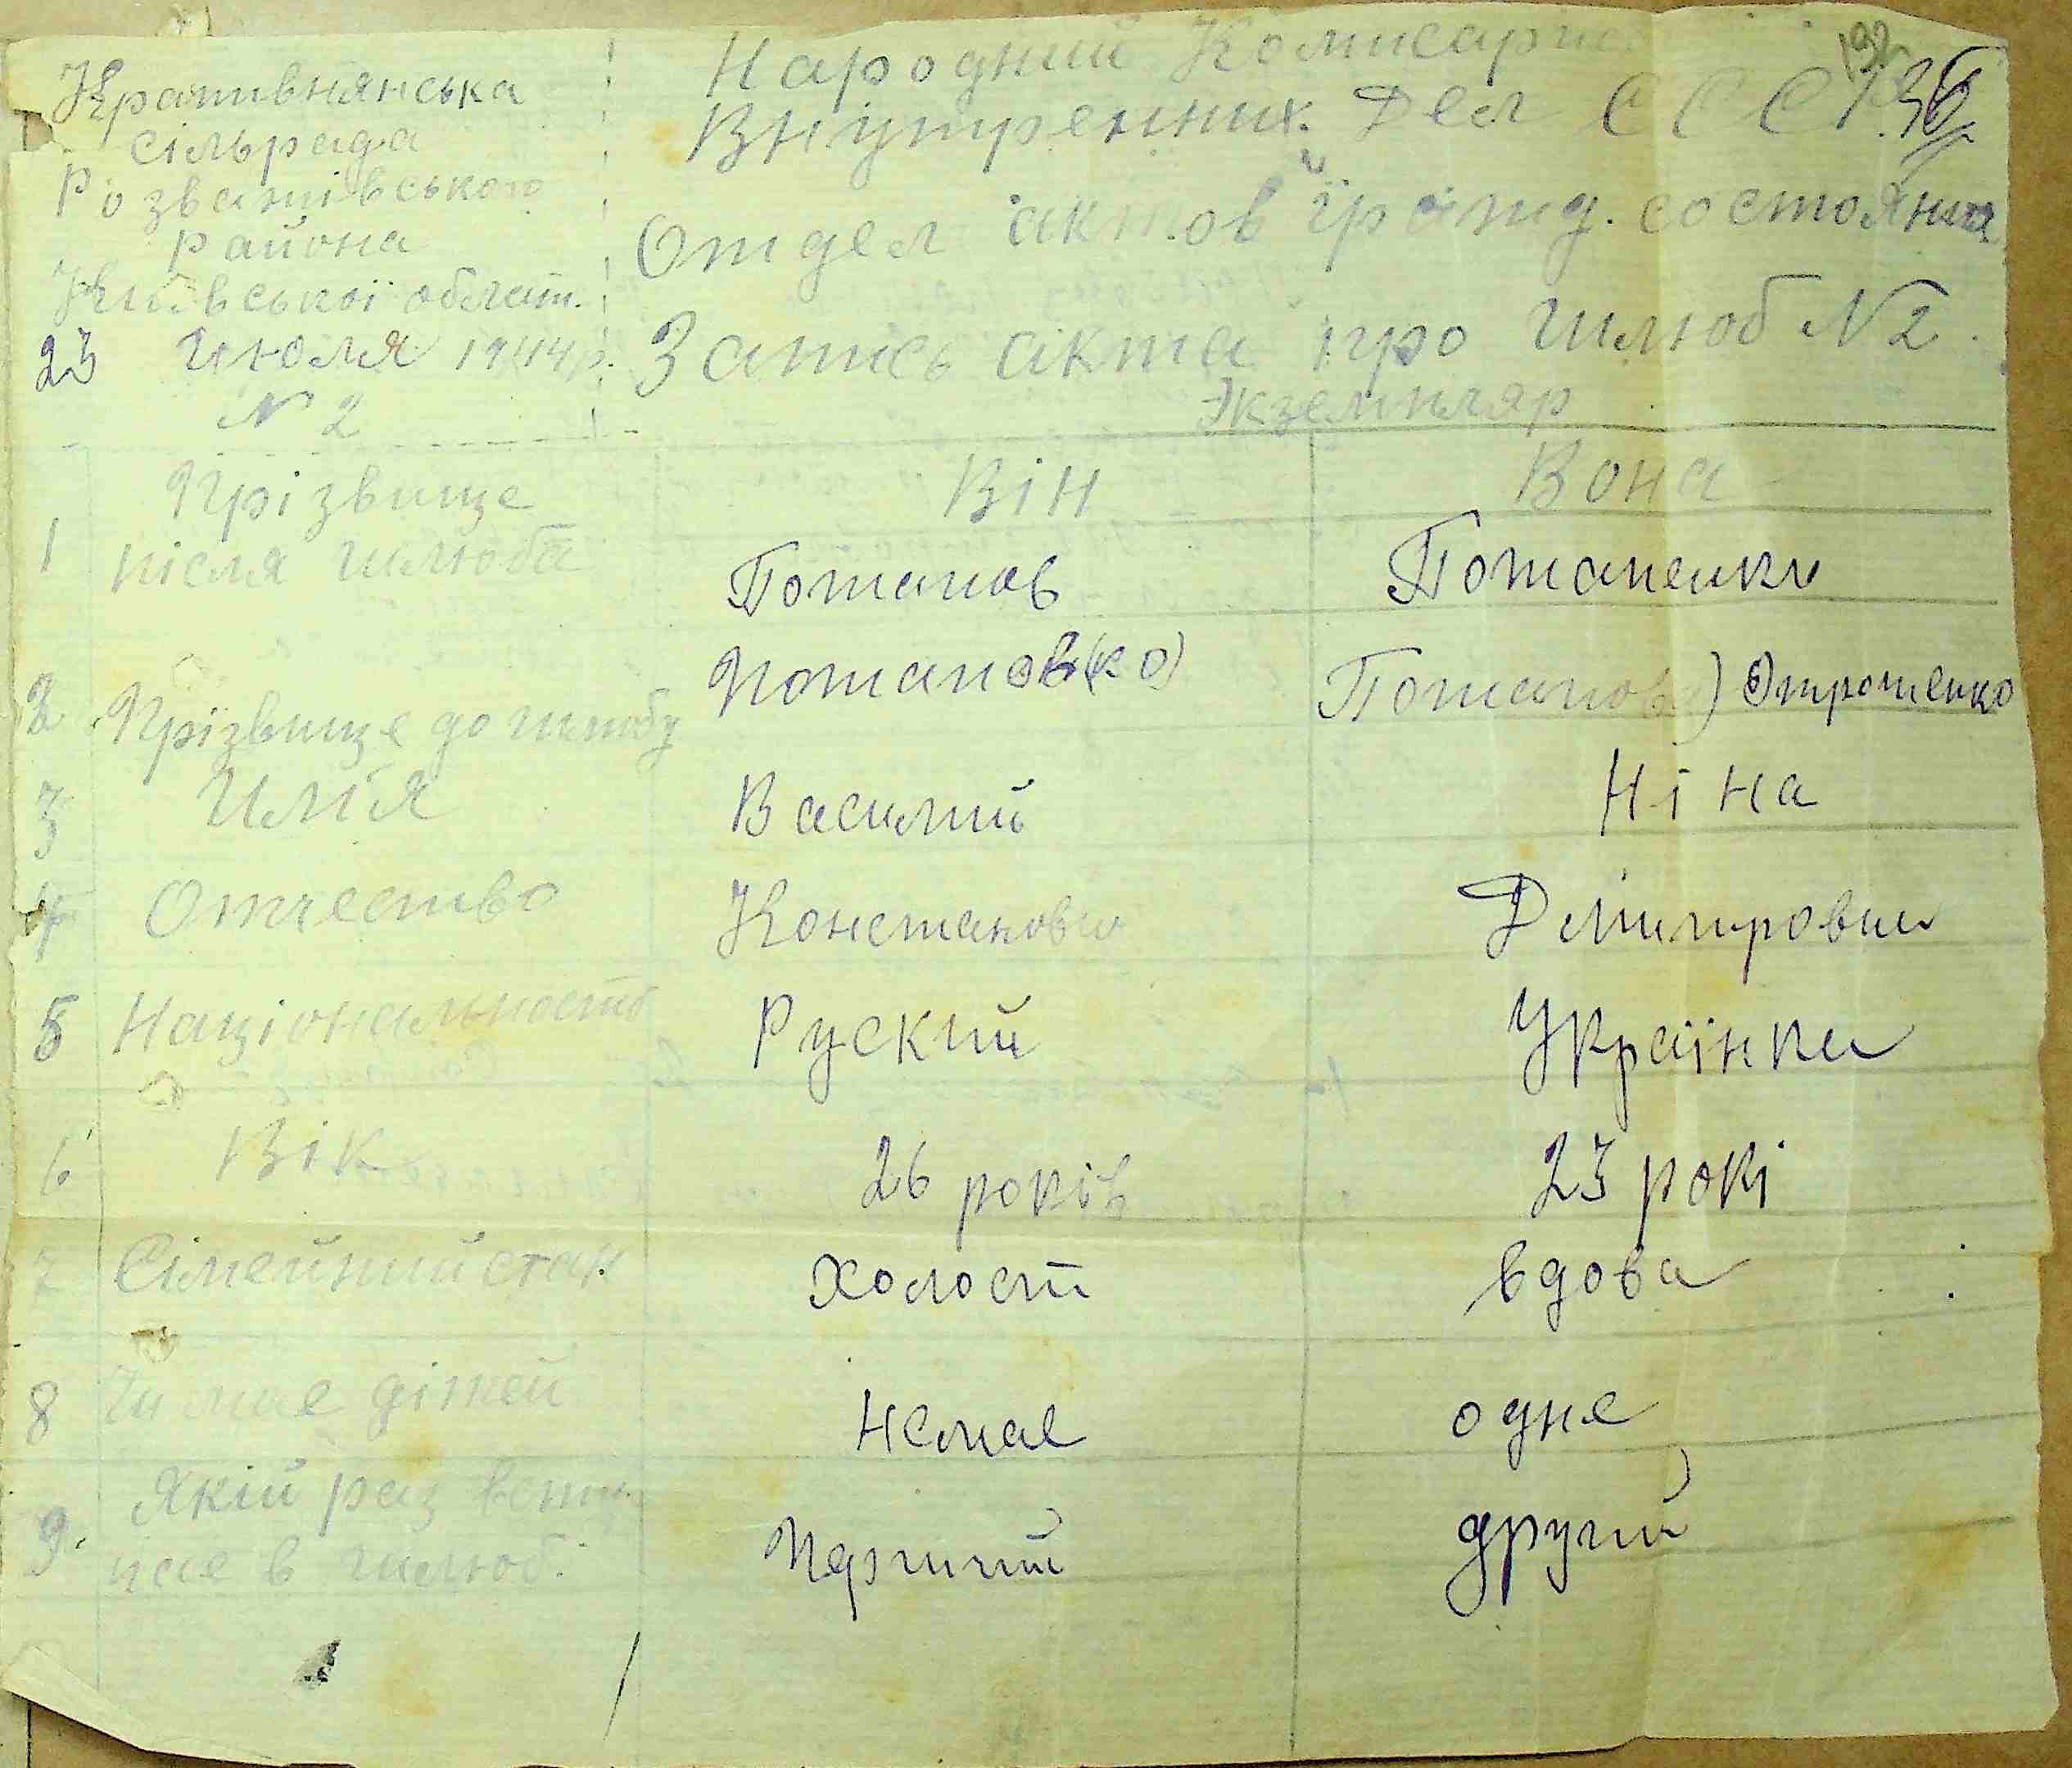 Кропивнянська
сільрада
Розважівського
района
Київської област.
23 июля 1944р.
N 2
Народний Комисариа
Внутренних Дел СССР
192
36
Отдел актов гражд. состояния
Запись акта про шлюб N 2
Экземпляр
Він Вона
1 Прізвище
після шлюба Потапов Потапенко
2 Прізвище до шлюбу Потапов(ко) Потапова)
3 Имія Василий Ніна
4 Отчество Констанови Дмитрови
5 Національность Руский Українка
6 Вік 26 років 23 рокі
7 Сімейний стан Холост вдова
8 Чи має дітей Немає одне
9. Якій раз всту
пає в шлюб. Перший другий